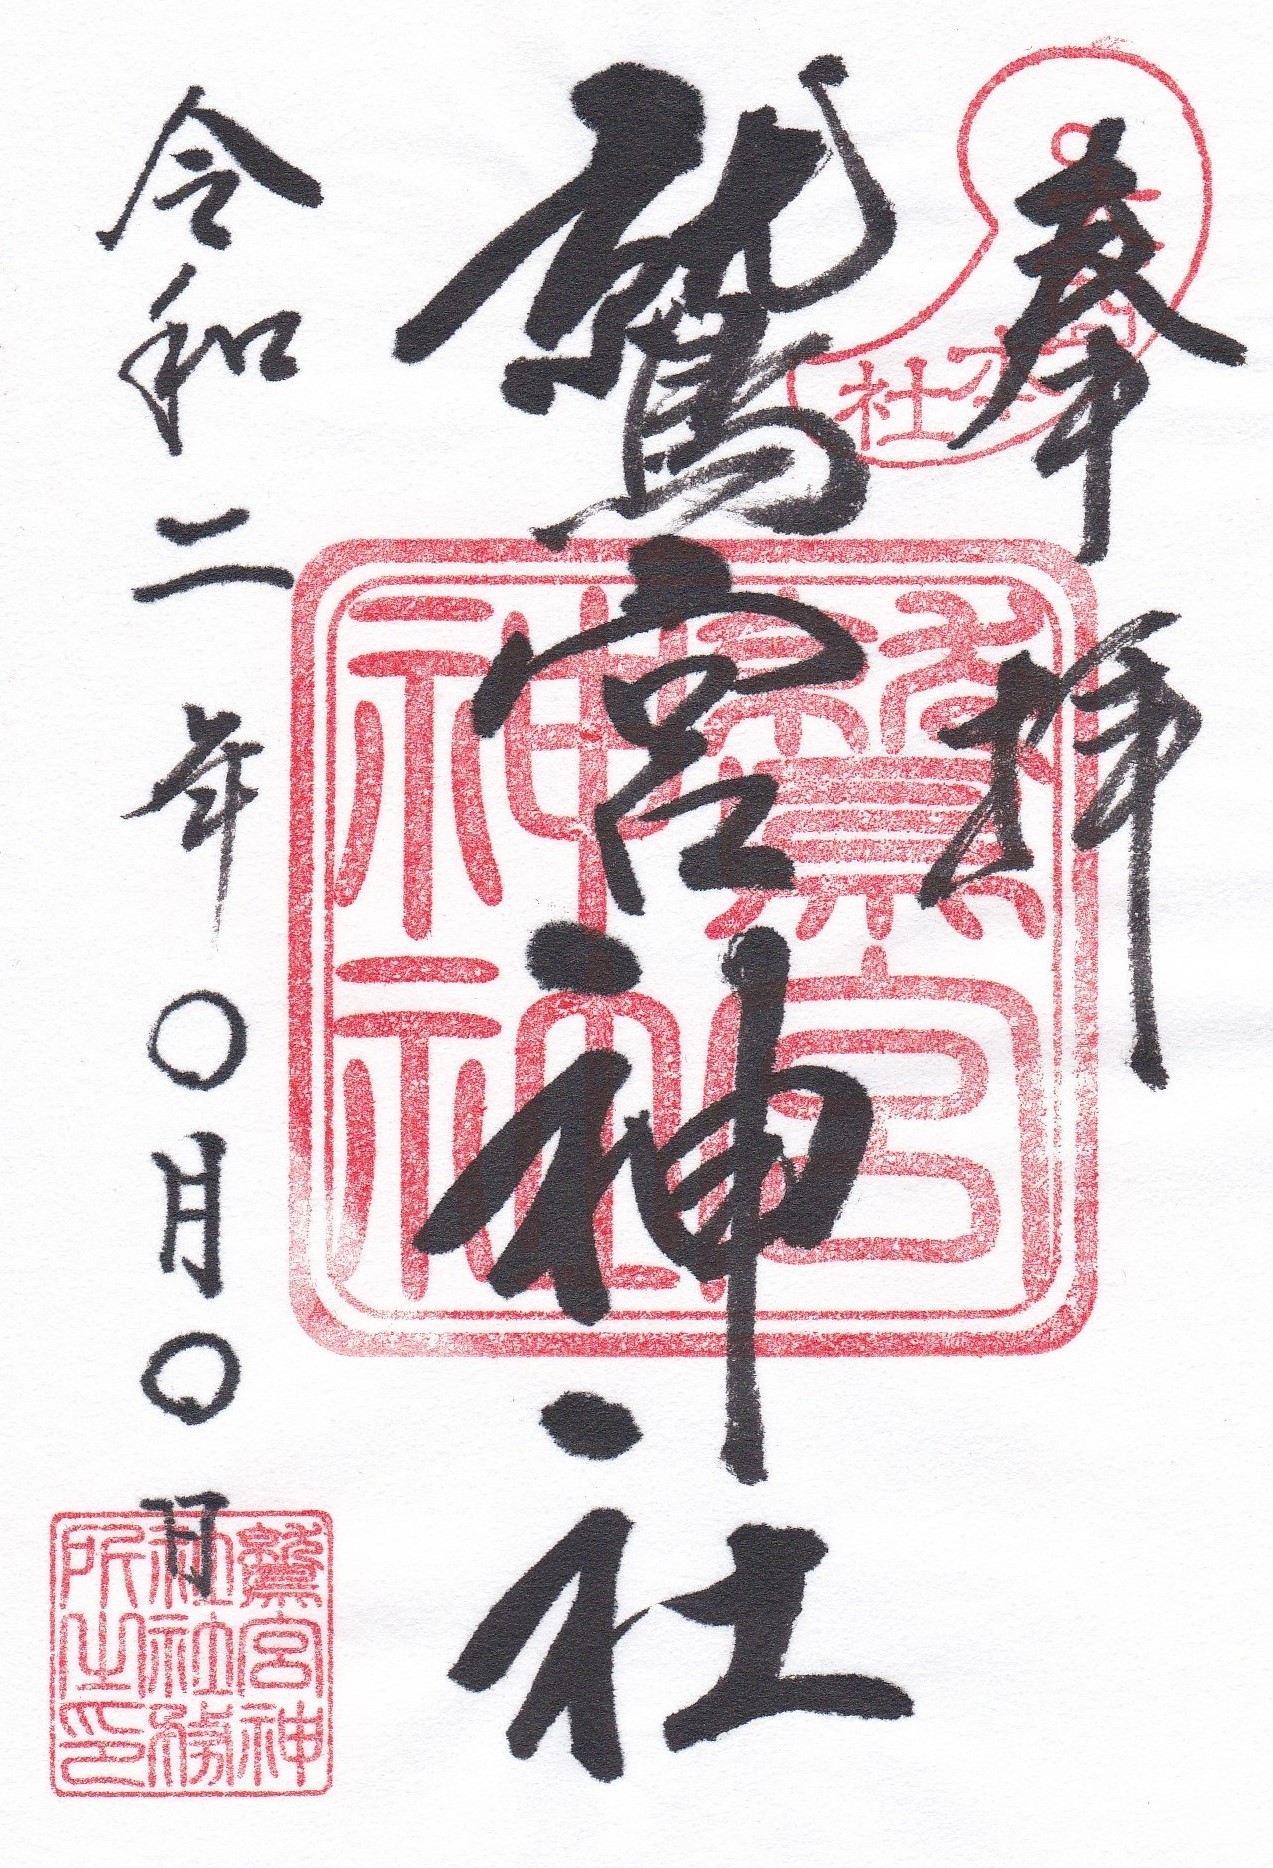 奉拝
本社
鷲宮神社
鷲宮神社
令和二年〇月〇日
鷲宮神
社社務
所之印